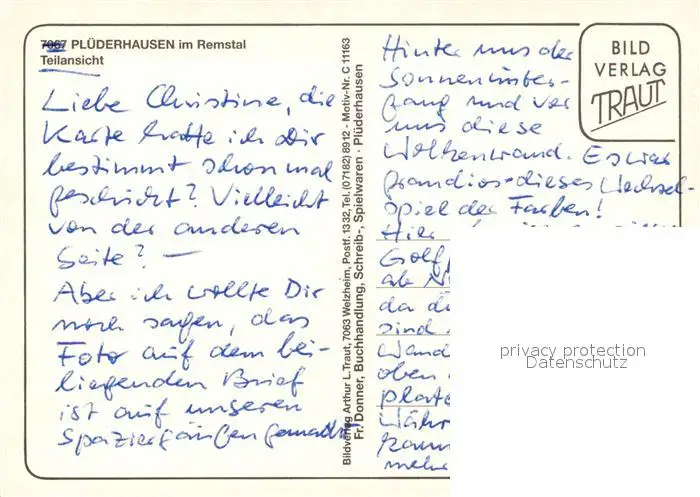 7067 PLÜDERHAUSEN im Remstal
Teilansicht
Liebe Christine, die
Karte hatte ich Dir
bestimmt schon mal
geschickt? Vielleicht
von der anderen
Seite? —
Aber ich wollte Dir
noch sagen, das
Foto auf dem bei-
liegenden Brief
ist auf unseren
Spaziergängen gemacht
Bildverlag Arthur L. Traut, 7063 Welzheim, Postf. 1332, Tel. (07182) 8912 · Motiv-Nr. C 11163
Fr. Donner, Buchhandlung, Schreib-, Spielwaren · Plüderhausen
Hinter uns der
Sonnenunter-
gang und vor
uns diese
Wolkenwand. Es war
grandios – dieses Wechsel-
spiel der Farben!
Hier
Golf
ab
da
sind
Wand
oben
plate
Währ
kann
mehr
BILD
VERLAG
TRAUT
privacy protection
Datenschutz